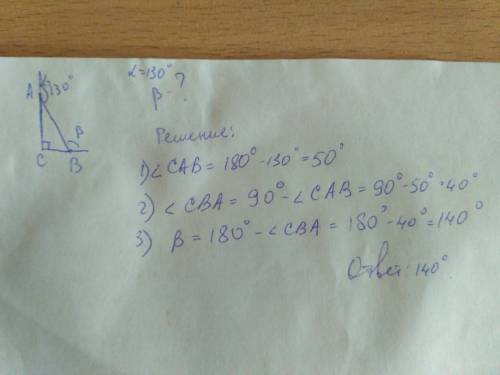 α=130°
β-?
A 130°
β
C B
Решение:
1) ∠CAB = 180° - 130° = 50°
2) ∠CBA = 90° - ∠CAB = 90° - 50° = 40°
3) β = 180° - ∠CBA = 180° - 40° = 140°
Ответ: 140°.